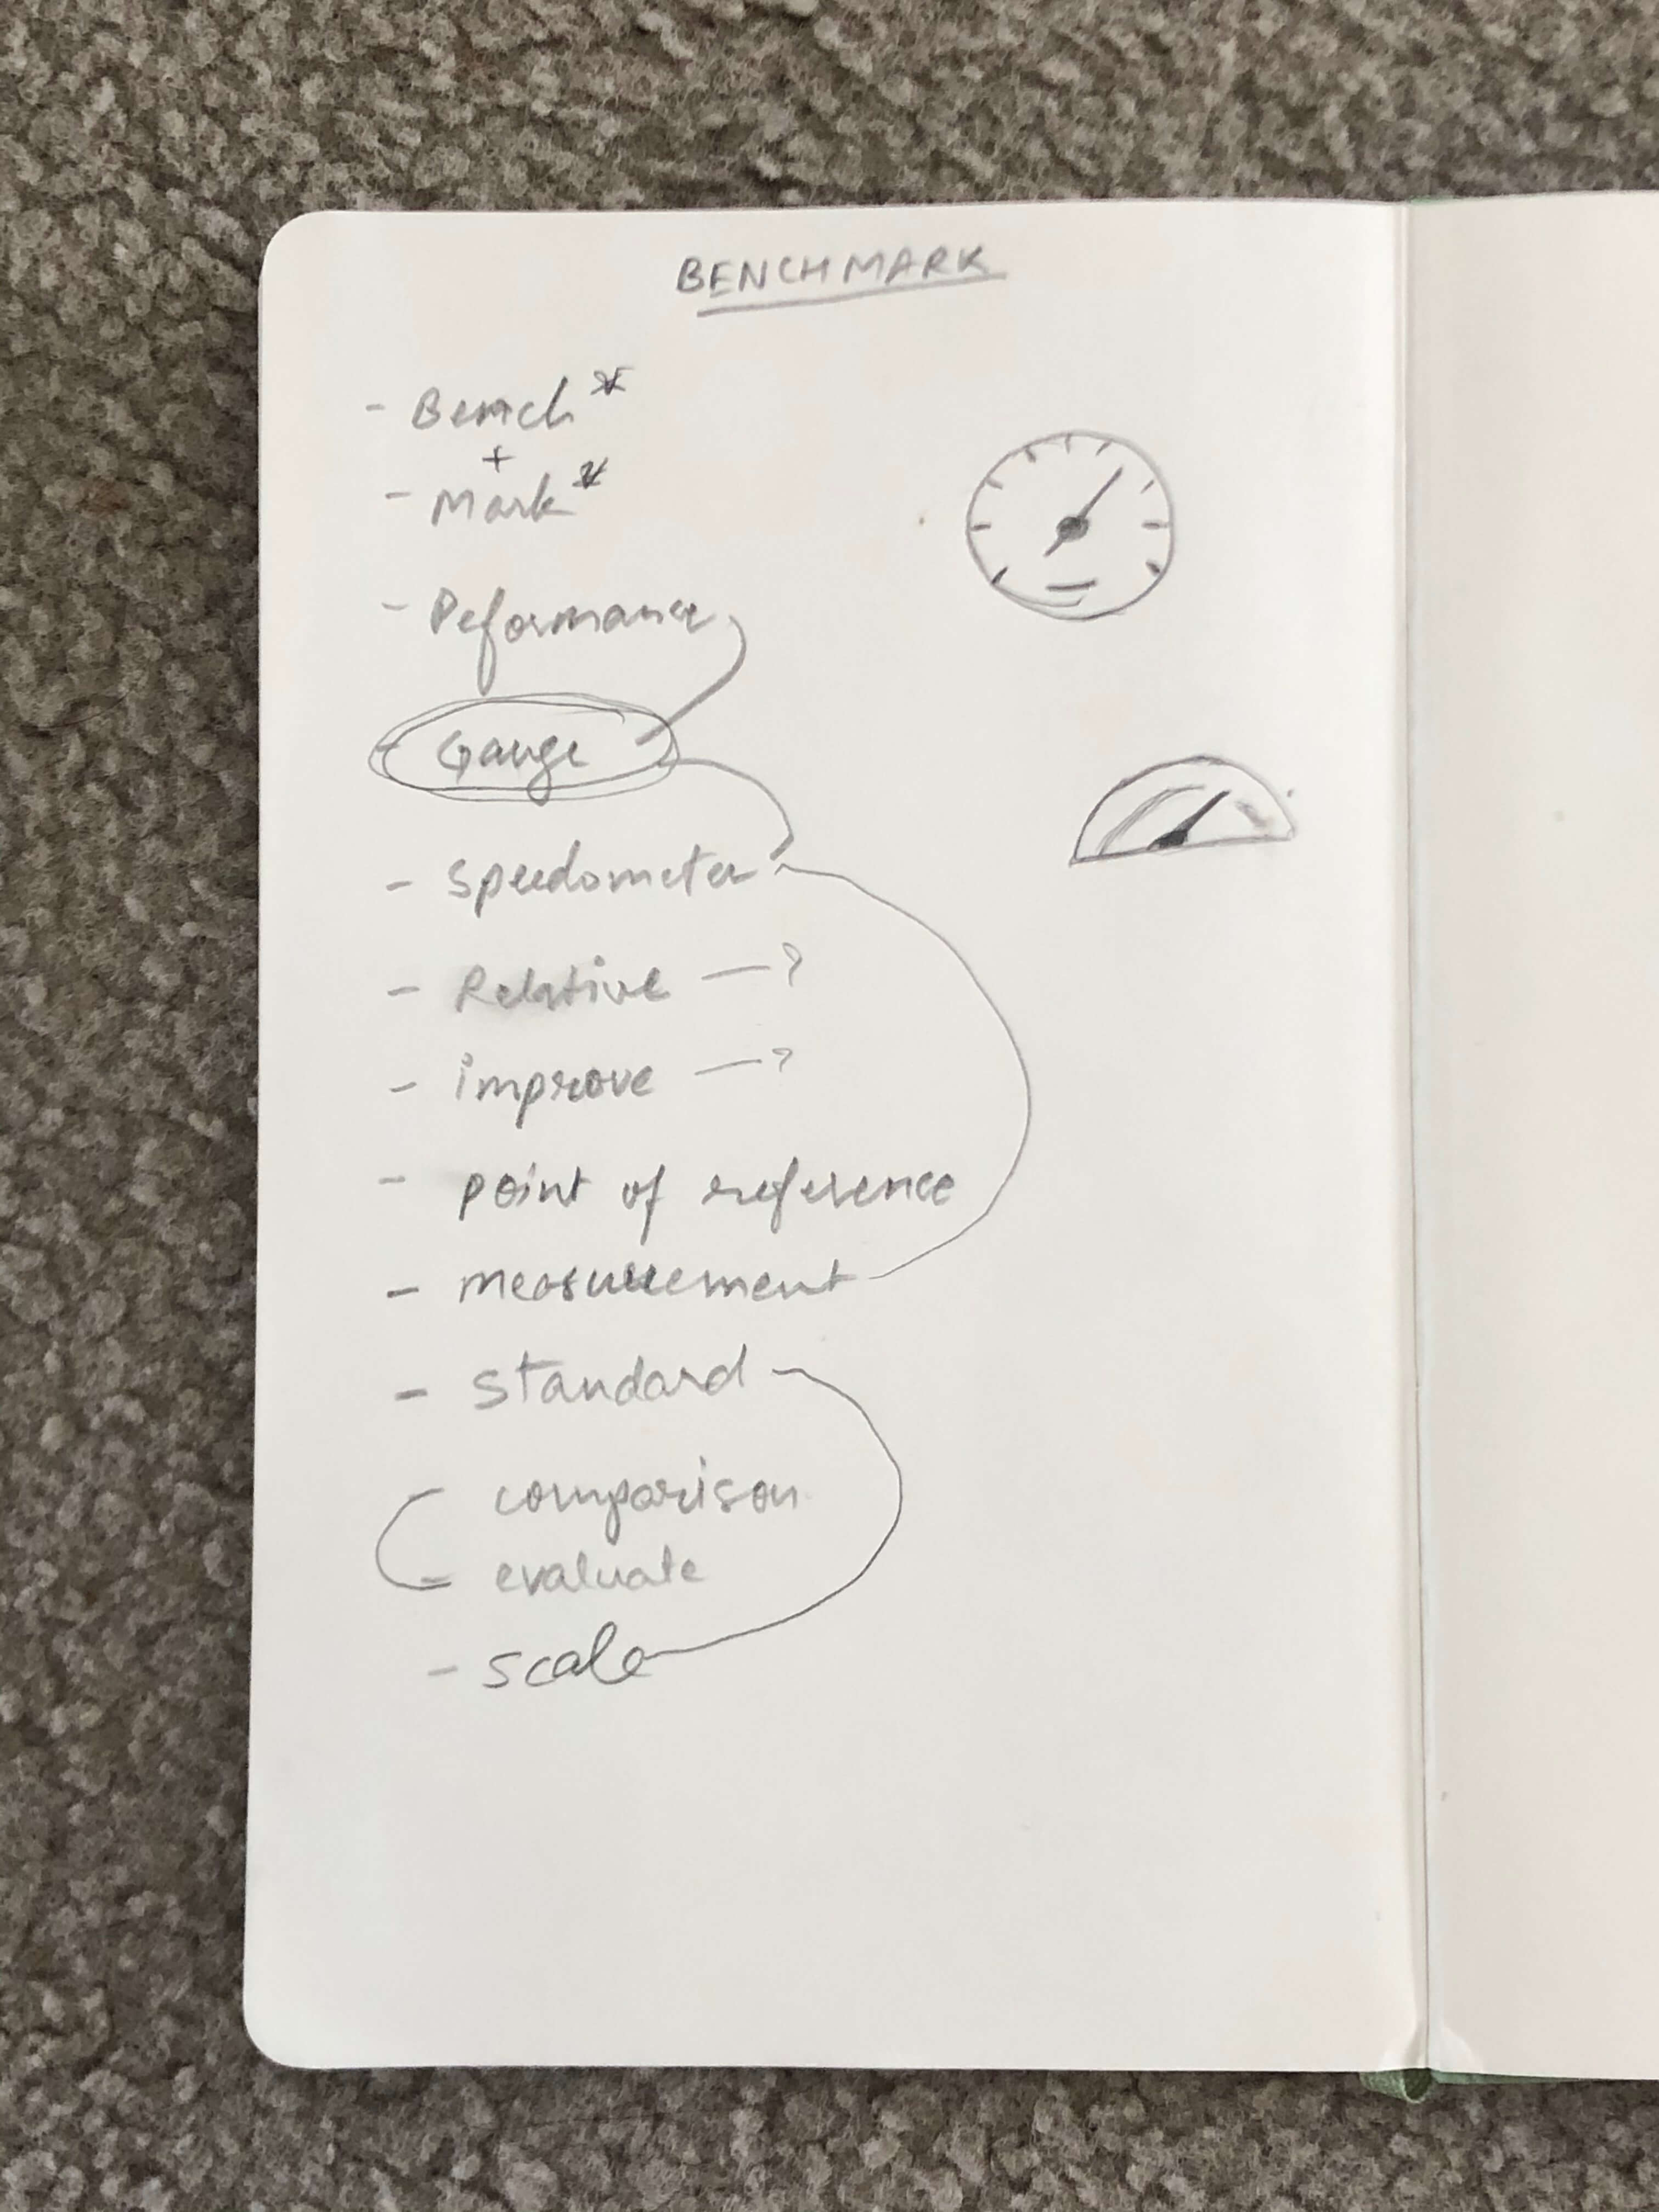 BENCHMARK
- Bench*
+
- Mark*
- Peformance
- Gauge
- Speedometer
- Relative — ?
- improve — ?
- point of reference
- measurement
- Standard
- comparison
- evaluate
- scale